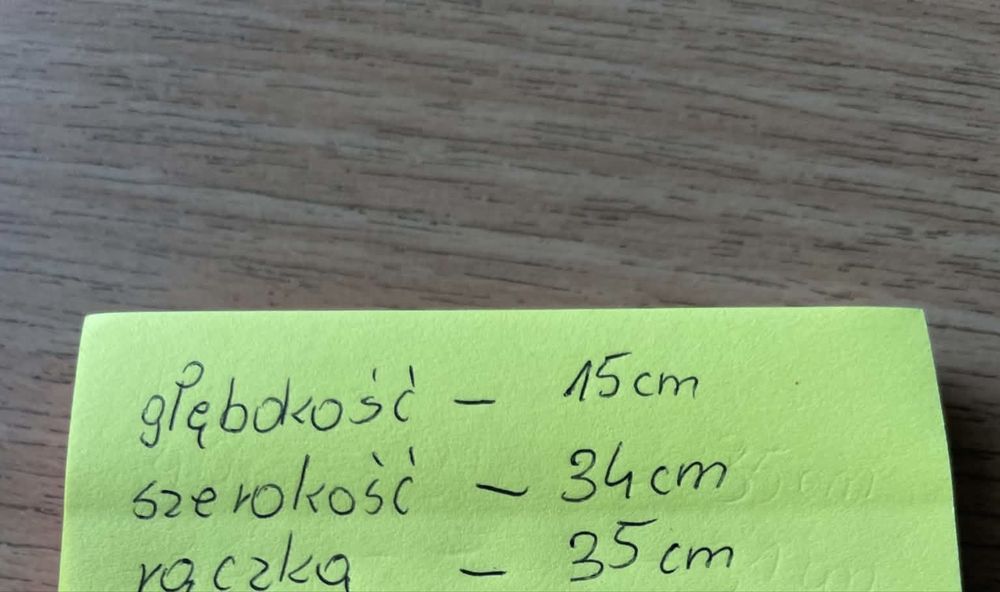 głębokość - 15cm
szerokość - 34cm
rączka - 35cm